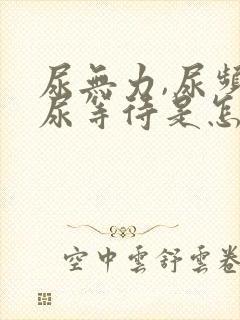 尿無力,尿頻
尿等待是怎
空中雲舒雲卷